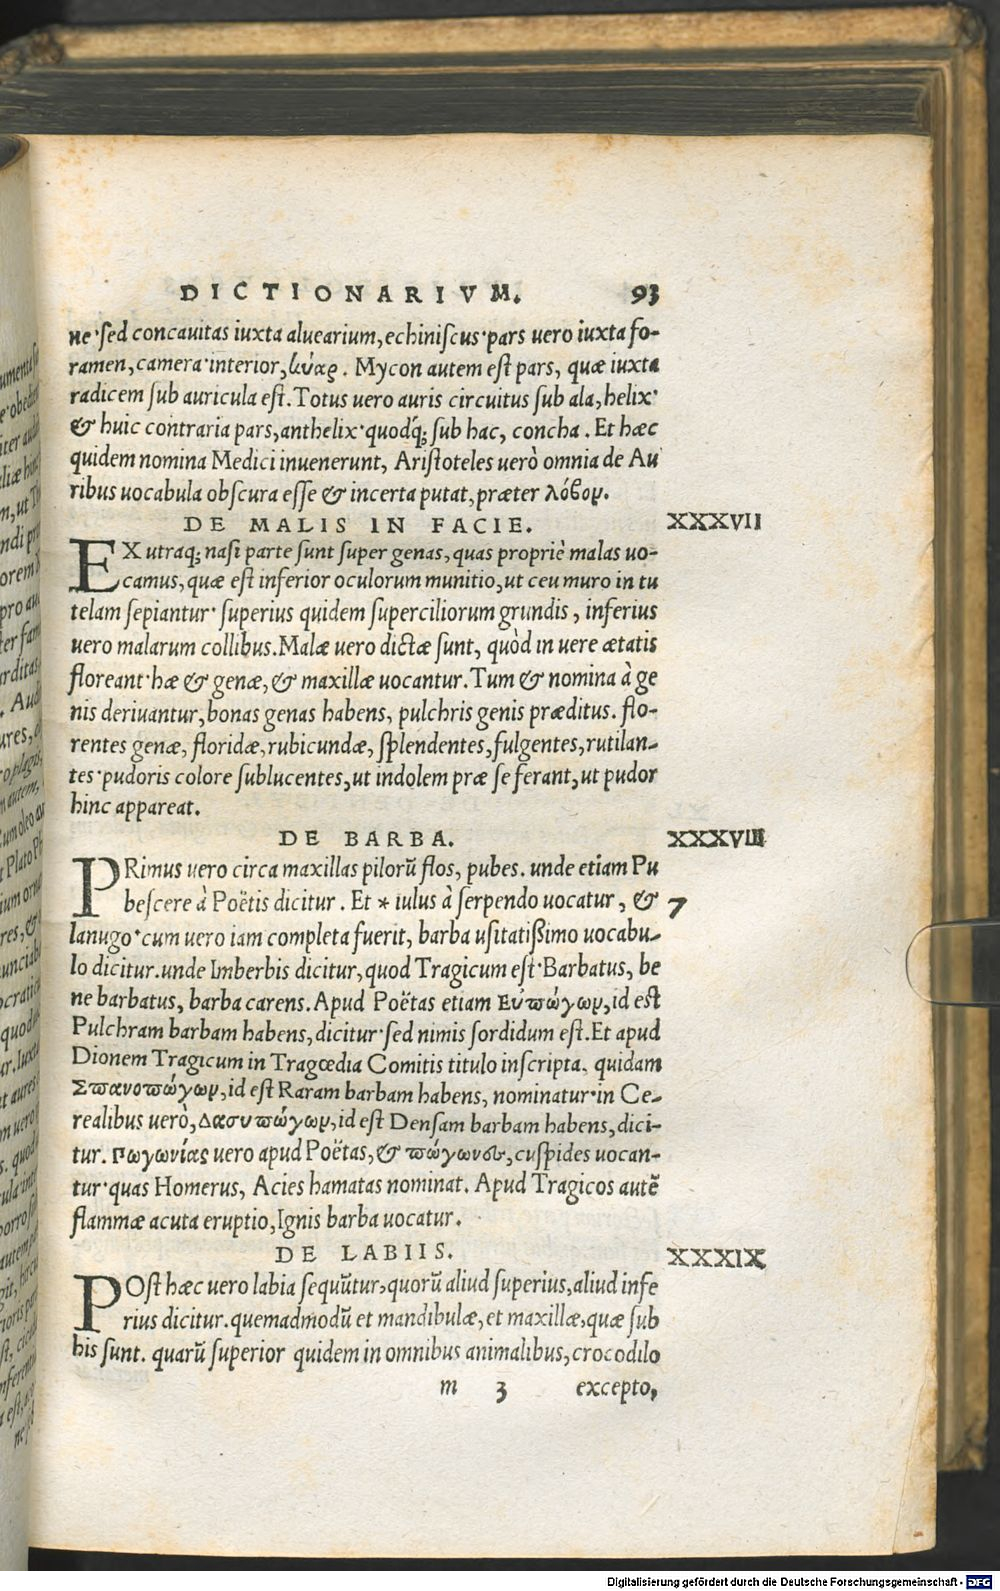 DICTIONARIVM. 93
ne·sed concauitas iuxta aluearium, echiniscus·pars uero iuxta fo-
ramen, camera·interior, κύαρ. Mycon autem est pars, quæ iuxta
radicem sub auricula est. Totus uero auris circuitus sub ala, helix·
& huic contraria pars, anthelix·quodq́; sub hac, concha. Et hæc
quidem nomina Medici inuenerunt, Aristoteles uerò omnia de Au
ribus uocabula obscura esse & incerta putat, præter λόβον.
DE MALIS IN FACIE. XXXVII
EX utraq; nasi parte sunt super genas, quas propriè malas uo-
camus, quæ est inferior oculorum munitio, ut ceu muro in tu
telam sepiantur· superius quidem superciliorum grundis, inferius
uero malarum collibus. Malæ uero dictæ sunt, quòd in uere ætatis
floreant·hæ & genæ, & maxillæ uocantur. Tum & nomina à ge
nis deriuantur, bonas genas habens, pulchris genis præditus. flo-
rentes genæ, floridæ, rubicundæ, splendentes, fulgentes, rutilan-
tes·pudoris colore sublucentes, ut indolem præ se ferant, ut pudor
hinc appareat.
DE BARBA. XXXVIII
PRimus uero circa maxillas pilorũ flos, pubes. unde etiam Pu
bescere à Poëtis dicitur. Et * iulus à serpendo uocatur, & 7
lanugo·cum uero iam completa fuerit, barba usitatißimo uocabu-
lo dicitur. unde Imberbis dicitur, quod Tragicum est·Barbatus, be
ne barbatus, barba carens. Apud Poëtas etiam Ευπώγων, id est
Pulchram barbam habens, dicitur·sed nimis sordidum est. Et apud
Dionem Tragicum in Tragœdia Comitis titulo inscripta, quidam
Σπανοπώγων, id est Raram barbam habens, nominatur·in Ce-
realibus uerò, Δασυπώγων, id est Densam barbam habens, dici-
tur. Πωγωνίας uero apud Poëtas, & πώγωνες, cuspides uocan-
tur·quas Homerus, Acies hamatas nominat. Apud Tragicos autẽ
flammæ acuta eruptio, Ignis barba uocatur.
DE LABIIS. XXXIX
POst hæc uero labia sequũtur, quorũ aliud superius, aliud infe
rius dicitur. quemadmodũ et mandibulæ, et maxillæ, quæ sub
his sunt. quarũ superior quidem in omnibus animalibus, crocodilo
m 3 excepto,
Digitalisierung gefördert durch die Deutsche Forschungsgemeinschaft - DFG